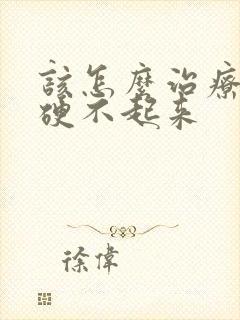 該怎麼治療
硬不起来
徐偉